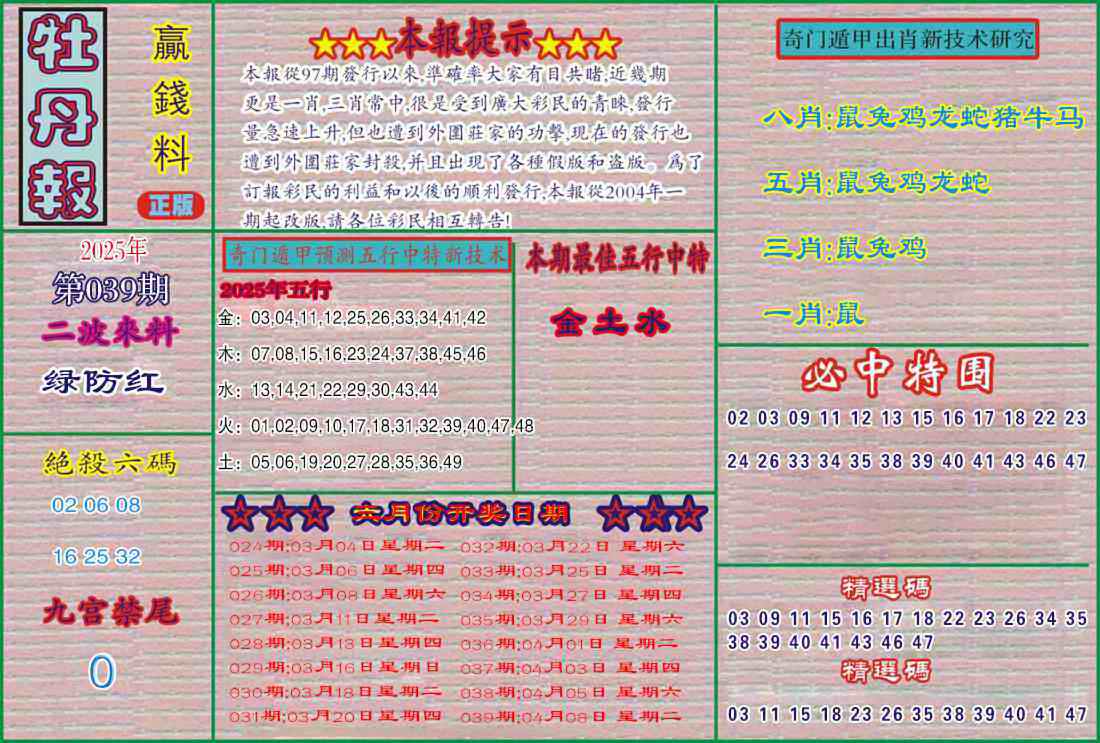 牡丹報
贏錢料
正版
★★★本報提示★★★
本報從97期發行以來,準確率大家有目共睹,近幾期
更是一肖,三肖常中,很是受到廣大彩民的青睞,發行
量急速上升,但也遭到外圍莊家的功擊,現在的發行也
遭到外圍莊家封殺,并且出現了各種假版和盗版。爲了
訂報彩民的利益和以後的順利發行,本報從2004年一
期起改版,請各位彩民相互轉告!
奇门遁甲出肖新技术研究
八肖:鼠兔鸡龙蛇猪牛马
五肖:鼠兔鸡龙蛇
三肖:鼠兔鸡
一肖:鼠
2025年
第039期
二波來料
绿防红
奇门遁甲预测五行中特新技术
2025年五行
金：03,04,11,12,25,26,33,34,41,42
木：07,08,15,16,23,24,37,38,45,46
水：13,14,21,22,29,30,43,44
火：01,02,09,10,17,18,31,32,39,40,47,48
土：05,06,19,20,27,28,35,36,49
本期最佳五行中特
金土水
必中特围
02 03 09 11 12 13 15 16 17 18 22 23
24 26 33 34 35 38 39 40 41 43 46 47
絶殺六碼
02 06 08
16 25 32
九宫禁尾
0
☆☆☆ 六月份开奖日期 ☆☆☆
024期:03月04日星期二 032期:03月22日 星期六
025期:03月06日星期四 033期:03月25日 星期二
026期:03月08日星期六 034期:03月27日 星期四
027期:03月11日星期二 035期:03月29日 星期六
028期:03月13日星期四 036期:04月01日 星期二
029期:03月16日星期日 037期:04月03日 星期四
030期:03月18日星期二 038期:04月05日 星期六
031期:03月20日星期四 039期:04月08日 星期二
精選碼
03 09 11 15 16 17 18 22 23 26 34 35
38 39 40 41 43 46 47
精選碼
03 11 15 18 23 26 35 38 39 40 41 47